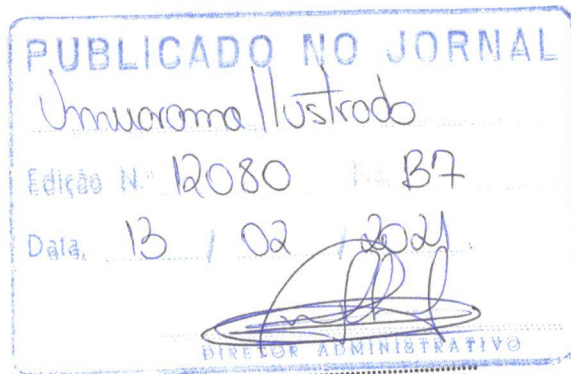 PUBLICADO NO JORNAL
Umuarama Ilustrado
Edição N.º 12080 B7
Data, 13 / 02 / 2021
DIRETOR ADMINISTRATIVO